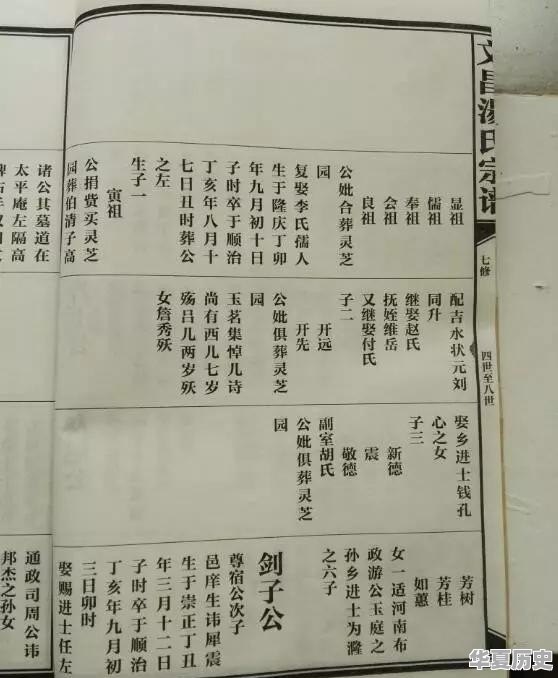 文昌湯氏宗谱
七修
四世至八世
显祖
儒祖
奉祖
会祖
良祖
公妣合葬灵芝
园
复娶李氏孺人
生于隆庆丁卯
年九月初十日
子时卒于顺治
丁亥年八月十
七日丑时葬公
之左
生子一
寅祖
公捐费买灵芝
园葬伯清子高
诸公其墓道在
太平庵左隔高
配吉水状元刘
同升
继娶赵氏
抚姪维岳
又继娶付氏
子二
开远
开先
公妣俱葬灵芝
园
玉茗集悼儿诗
尚有西儿七岁
殇吕儿两岁殀
女詹秀殀
娶乡进士钱孔
心之女
子三
新德
震
敬德
副室胡氏
公妣俱葬灵芝
园
芳树
芳桂
如蕙
女一适河南布
政游公玉庭之
孙乡进士为漋
之六子
剑子公
尊宿公次子
邑庠生讳犀震
生于崇正丁丑
年三月十二日
子时卒于顺治
丁亥年九月初
三日卯时
娶赐进士任左
通政司周公讳
邦杰之孙女
华夏历史